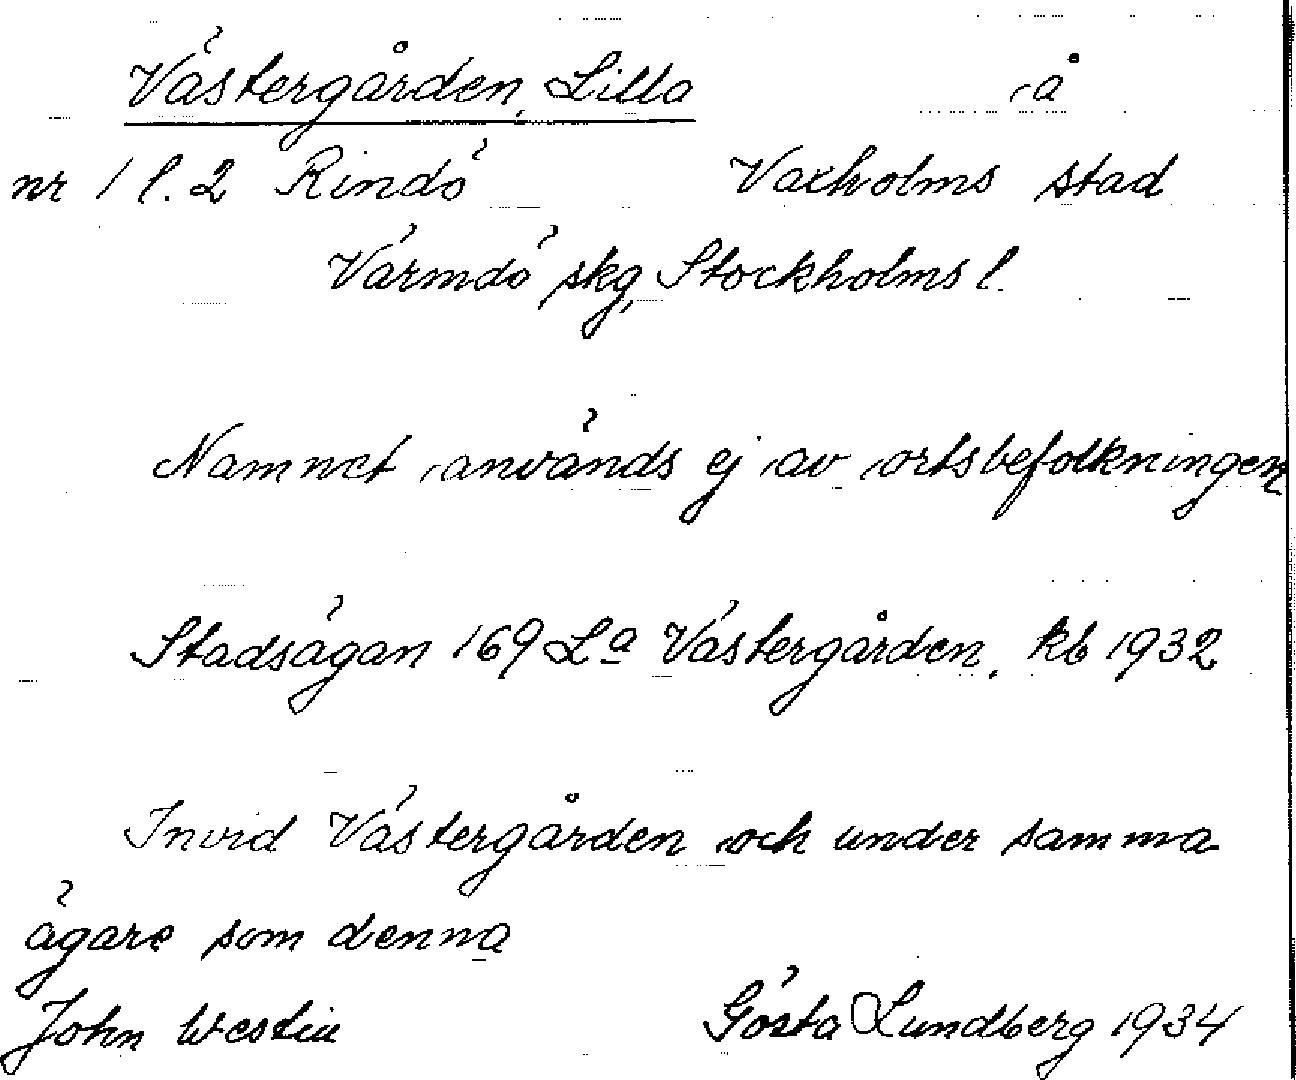 Västergården, Lilla å
nr 1 l. 2 Rindö Vaxholms stad
Värmdö skg, Stockholms l.
Namnet används ej av ortsbefolkningen
Stadsägan 169 La Västergården. kb 1932
Invid Västergården och under samma
ägare som denna
John Westin Gösta Lundberg 1934